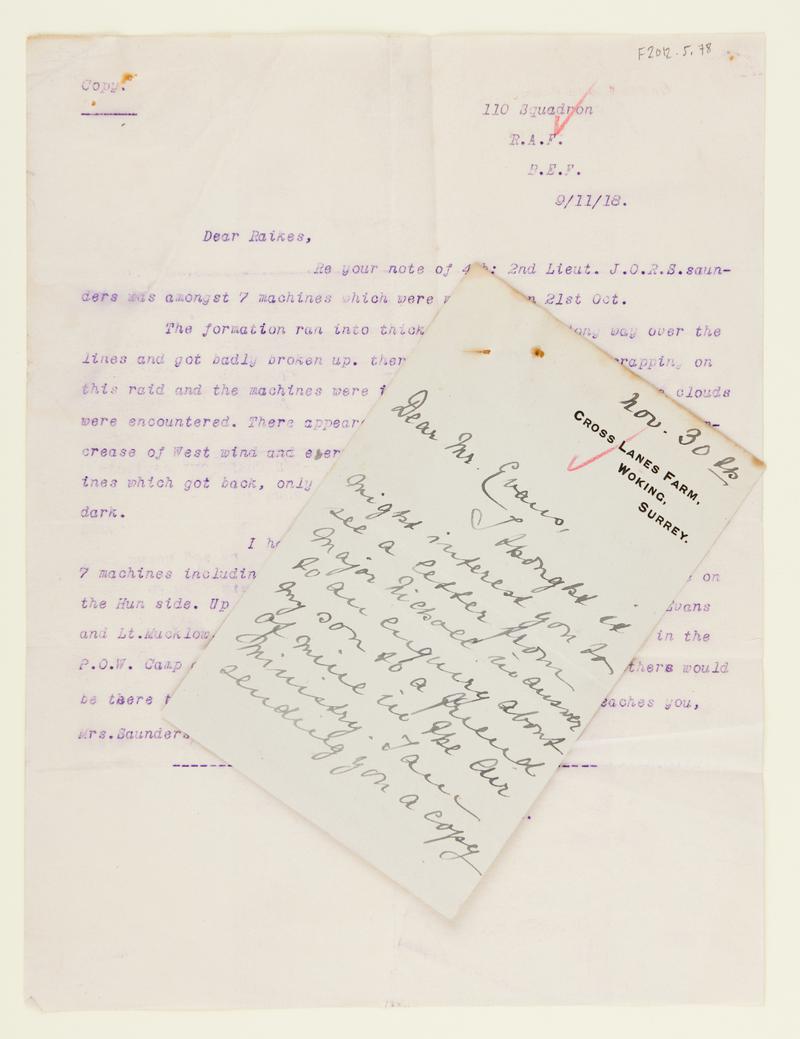 F2012.5.78
Copy.
110 Squadron
R.A.F.
B.E.F.
9/11/18.
Dear Raikes,
Re your note of 2nd Lieut. J.O.R.S.saun-
ders was amongst 7 machines which were 21st Oct.
The formation ran into thick long way over the
lines and got badly broken up. on
this raid and the machines were clouds
were encountered. There
crease of West wind and
ines which got back, only
dark.
I
7 machines on
the Hun side. Up Evans
and Lt.Mucklow in the
P.O.W. Camp would
be there
Mrs.Saunders
Nov. 30th
Cross Lanes Farm,
Woking,
Surrey.
Dear Mr. Evans,
I thought it
might interest you to
see a letter from
Major Nicholl in answer
to an enquiry about
my son to a friend
of mine in the Air
Ministry. I am
sending you a copy